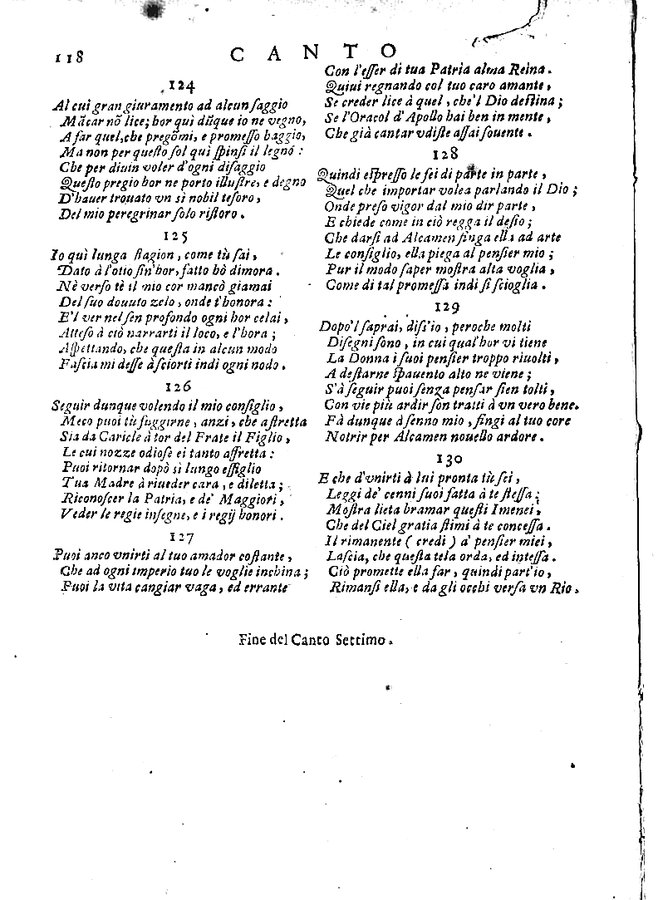 118
CANTO
124
Al cui gran giuramento ad alcun saggio
Mãcar nõ lice; hor quì dũque io ne vegno,
A far quel, che pregõmi, e promesso haggio,
Ma non per questo sol quì spinsi il legno:
Che per diuin voler d'ogni disaggio
Questo pregio hor ne porto illustre, e degno
D'hauer trouato vn sì nobil tesoro,
Del mio peregrinar solo ristoro.
125
Io quì lunga stagion, come tù sai,
Dato à l'otio sin'hor, fatto hò dimora.
Nè verso tè il mio cor mancò giamai
Del suo douuto zelo, onde t'honora:
E'l ver nel sen profondo ogni hor celai,
Atteso à ciò narrarti il loco, e l'hora;
Aspettando, che questa in alcun modo
Fascia mi desse à sciorti indi ogni nodo.
126
Seguir dunque volendo il mio consiglio,
Meco puoi tù fuggirne, anzi, che astretta
Sia da Caricle à tor del Frate il Figlio,
Le cui nozze odiose ei tanto affretta:
Puoi ritornar dopò sì lungo essiglio
Tua Madre à riueder cara, e diletta;
Riconoscer la Patria, e de' Maggiori,
Veder le regie insegne, e i regij honori.
127
Puoi anco vnirti al tuo amador costante,
Che ad ogni imperio tuo le voglie inchina;
Puoi la vita cangiar vaga, ed errante
Con l'esser di tua Patria alma Reina.
Quiui regnando col tuo caro amante,
Se creder lice à quel, che'l Dio destina;
Se l'Oracol d'Apollo hai ben in mente,
Che già cantar vdiste assai souente.
128
Quindi espresso le fei di parte in parte,
Quel che importar volea parlando il Dio;
Onde preso vigor dal mio dir parte,
E chiede come in ciò regga il desio;
Che darsi ad Alcamen finga ella ad arte
Le consiglio, ella piega al pensier mio;
Pur il modo saper mostra alta voglia,
Come di tal promessa indi si scioglia.
129
Dopo'l saprai, diss'io, peroche molti
Disegni sono, in cui qual'hor vi tiene
La Donna i suoi pensier troppo riuolti,
A destarne spauento alto ne viene;
S'à seguir puoi senza pensar sien tolti,
Con vie più ardir son tratti à vn vero bene.
Fà dunque à senno mio, fingi al tuo core
Notrir per Alcamen nouello ardore.
130
E che d'vnirti à lui pronta tù sei,
Leggi de' cenni suoi fatta à te stessa;
Mostra lieta bramar questi Imenei,
Che del Ciel gratia stimi à te concessa.
Il rimanente (credi) a' pensier miei,
Lascia, che questa tela orda, ed intessa.
Ciò promette ella far, quindi part'io,
Rimansi ella, e da gli occhi versa vn Rio.
Fine del Canto Settimo.